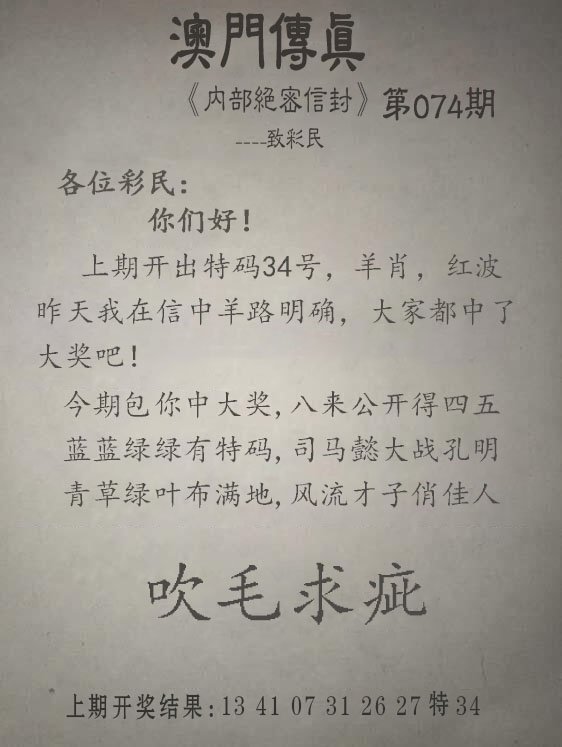 澳門傳真
《内部絕密信封》第074期
----致彩民
各位彩民：
你们好！
上期开出特码34号，羊肖，红波
昨天我在信中羊路明确，大家都中了
大奖吧！
今期包你中大奖,八来公开得四五
蓝蓝绿绿有特码,司马懿大战孔明
青草绿叶布满地,风流才子俏佳人
吹毛求疵
上期开奖结果:13 41 07 31 26 27特34